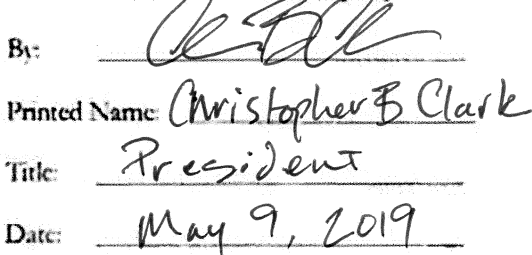 By:
Printed Name: Christopher B Clark
Title: President
Date: May 9, 2019